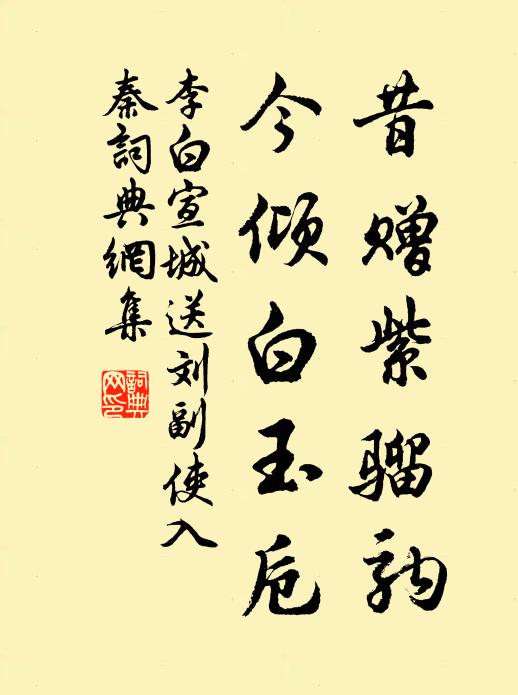 昔赠紫骝驹
今倾白玉卮
李白宣城送刘副使入
秦詞典網集
詞典网印